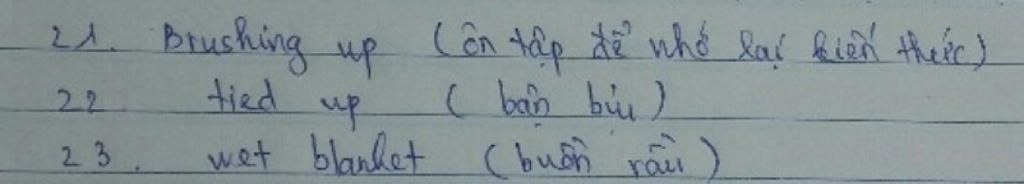 21. Brushing up (ôn tập để nhớ lại kiến thức)
22. tied up (bận bịu)
23. wet blanket (buồn rầu)